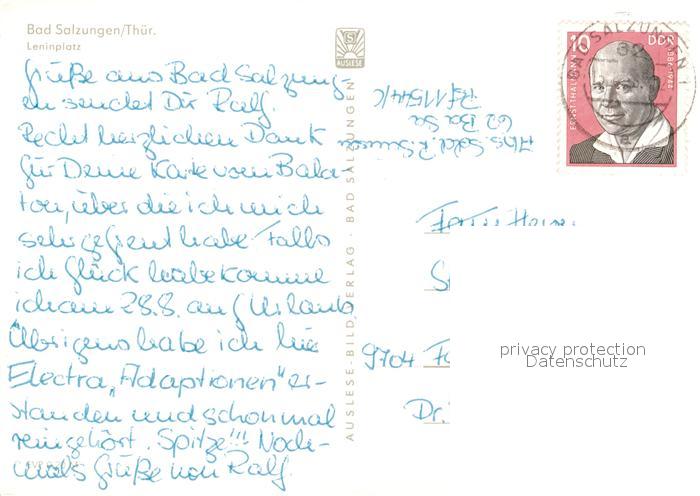 Bad Salzungen/Thür.
Leninplatz
Grüße aus Bad Salzung-
en sendet Dir Ralf.
Recht herzlichen Dank
für Deine Karte vom Bala-
ton, über die ich mich
sehr gefreut habe. Falls
ich Glück habe komme
ich am 28.8. auf Urlaub
Übrigens habe ich hier
Electra „Adaptionen" er-
standen und schon mal
reingehört. Spitze!!! Noch-
mals Grüße von Ralf.
AUSLESE
AUSLESE-BILD-VERLAG · BAD SALZUNGEN
Abs. Sold. R.
62 Ba Sa
Pf 11544/C
10
DDR
ERNST THÄLMANN
1886-1944
BAD SALZUNGEN 1
9704
Dr.
privacy protection
Datenschutz